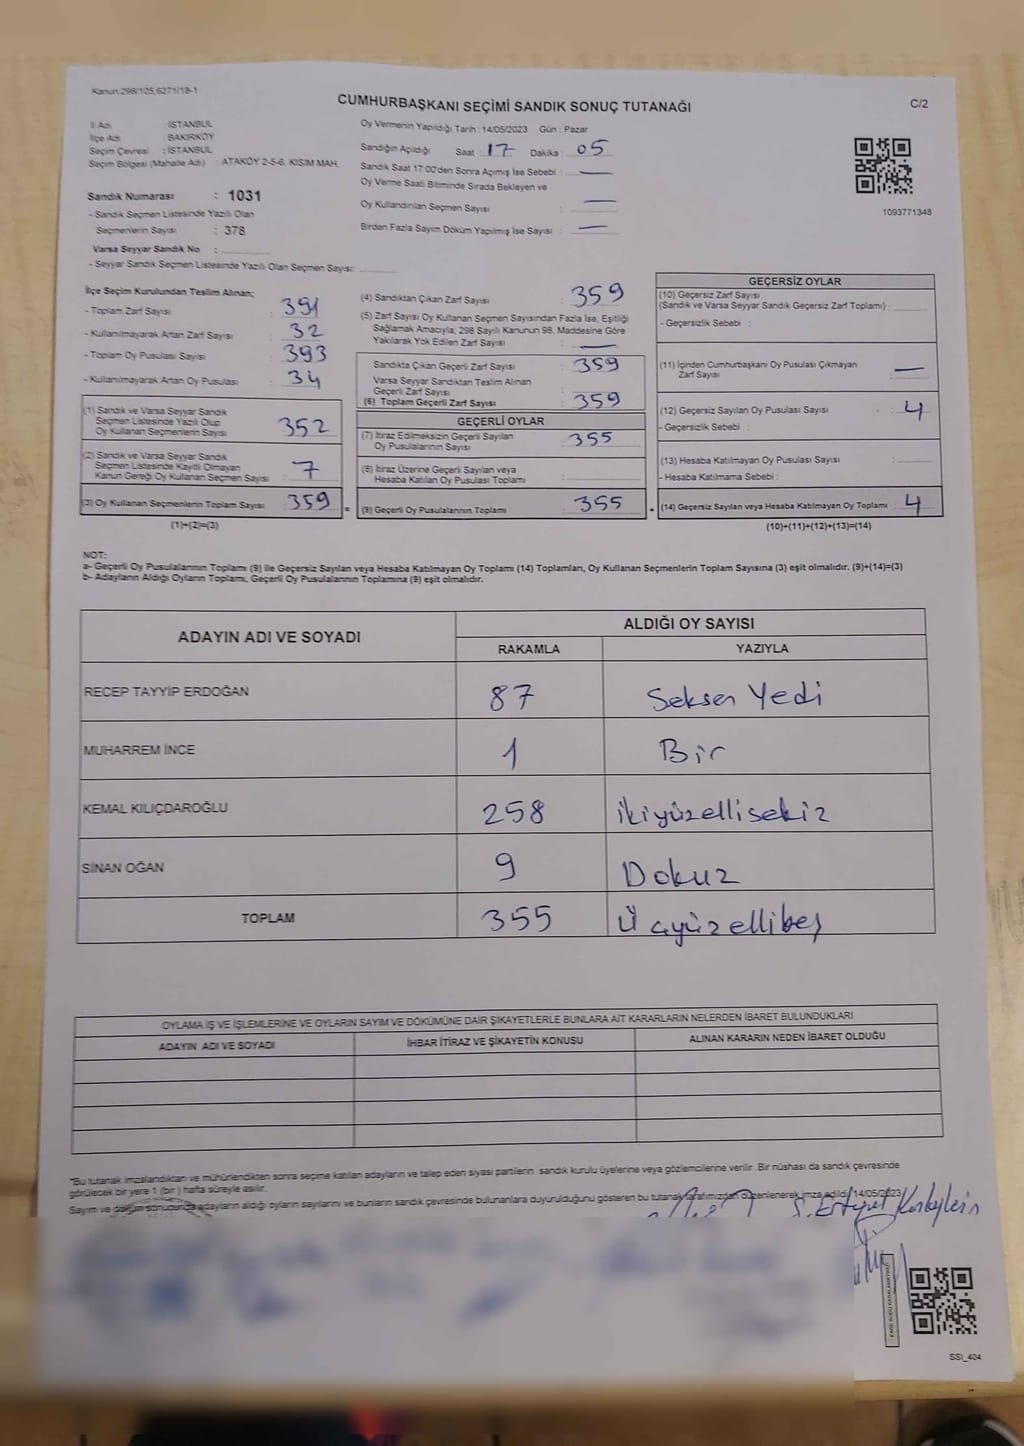 Kanun:298/105,6271/18-1
CUMHURBAŞKANI SEÇİMİ SANDIK SONUÇ TUTANAĞI
C/2
İl Adı : İSTANBUL
İlçe Adı : BAKIRKÖY
Seçim Çevresi : İSTANBUL
Seçim Bölgesi (Mahalle Adı) : ATAKÖY 2-5-6. KISIM MAH.
Sandık Numarası : 1031
- Sandık Seçmen Listesinde Yazılı Olan
Seçmenlerin Sayısı : 378
Varsa Seyyar Sandık No :
- Seyyar Sandık Seçmen Listesinde Yazılı Olan Seçmen Sayısı:
Oy Vermenin Yapıldığı Tarih : 14/05/2023 Gün : Pazar
Sandığın Açıldığı Saat : 17 Dakika : 05
Sandık Saat 17:00'den Sonra Açımış İse Sebebi : —
Oy Verme Saati Bitiminde Sırada Bekleyen ve
Oy Kullandırılan Seçmen Sayısı : —
Birden Fazla Sayım Döküm Yapılmış İse Sayısı : —
1093771348
İlçe Seçim Kurulundan Teslim Alınan;
- Toplam Zarf Sayısı : 391
- Kullanılmayarak Artan Zarf Sayısı : 32
- Toplam Oy Pusulası Sayısı : 393
- Kullanılmayarak Artan Oy Pusulası : 34
(1) Sandık ve Varsa Seyyar Sandık
Seçmen Listesinde Yazılı Olup
Oy Kullanan Seçmenlerin Sayısı : 352
(2) Sandık ve Varsa Seyyar Sandık
Seçmen Listesinde Kayıtlı Olmayan
Kanun Gereği Oy Kullanan Seçmen Sayısı : 7
(3) Oy Kullanan Seçmenlerin Toplam Sayısı : 359
(1)+(2)=(3)
=
(4) Sandıktan Çıkan Zarf Sayısı : 359
(5) Zarf Sayısı Oy Kullanan Seçmen Sayısından Fazla İse, Eşitliği
Sağlamak Amacıyla, 298 Sayılı Kanunun 98. Maddesine Göre
Yakılarak Yok Edilen Zarf Sayısı : —
Sandıkta Çıkan Geçerli Zarf Sayısı : 359
Varsa Seyyar Sandıktan Teslim Alınan
Geçerli Zarf Sayısı :
(6) Toplam Geçerli Zarf Sayısı : 359
GEÇERLİ OYLAR
(7) İtiraz Edilmeksizin Geçerli Sayılan
Oy Pusulalarının Sayısı : 355
(8) İtiraz Üzerine Geçerli Sayılan veya
Hesaba Katılan Oy Pusulası Toplamı :
(9) Geçerli Oy Pusulalarının Toplamı : 355
+
GEÇERSİZ OYLAR
(10) Geçersiz Zarf Sayısı
(Sandık ve Varsa Seyyar Sandık Geçersiz Zarf Toplamı) :
- Geçersizlik Sebebi :
(11) İçinden Cumhurbaşkanı Oy Pusulası Çıkmayan
Zarf Sayısı : —
(12) Geçersiz Sayılan Oy Pusulası Sayısı : 4
- Geçersizlik Sebebi :
(13) Hesaba Katılmayan Oy Pusulası Sayısı :
- Hesaba Katılmama Sebebi :
(14) Geçersiz Sayılan veya Hesaba Katılmayan Oy Toplamı : 4
(10)+(11)+(12)+(13)=(14)
NOT:
a- Geçerli Oy Pusulalarının Toplamı (9) ile Geçersiz Sayılan veya Hesaba Katılmayan Oy Toplamı (14) Toplamları, Oy Kullanan Seçmenlerin Toplam Sayısına (3) eşit olmalıdır. (9)+(14)=(3)
b- Adayların Aldığı Oyların Toplamı, Geçerli Oy Pusulalarının Toplamına (9) eşit olmalıdır.
ADAYIN ADI VE SOYADI
ALDIĞI OY SAYISI
RAKAMLA YAZIYLA
RECEP TAYYİP ERDOĞAN 87 Seksen Yedi
MUHARREM İNCE 1 Bir
KEMAL KILIÇDAROĞLU 258 ikiyüzellisekiz
SİNAN OĞAN 9 Dokuz
TOPLAM 355 Üçyüzellibeş
OYLAMA İŞ VE İŞLEMLERİNE VE OYLARIN SAYIM VE DÖKÜMÜNE DAİR ŞİKAYETLERLE BUNLARA AİT KARARLARIN NELERDEN İBARET BULUNDUKLARI
ADAYIN ADI VE SOYADI İHBAR İTİRAZ VE ŞİKAYETİN KONUSU ALINAN KARARIN NEDEN İBARET OLDUĞU
*Bu tutanak imzalandıktan ve mühürlendikten sonra seçime katılan adayların ve talep eden siyasi partilerin sandık kurulu üyelerine veya gözlemcilerine verilir. Bir nüshası da sandık çevresinde
görülecek bir yere 1 (bir) hafta süreyle asılır.
Sayım ve döküm sonucunda adayların aldığı oyların sayılarını ve bunların sandık çevresinde bulunanlara duyurulduğunu gösteren bu tutanak tarafımızdan düzenlenerek imza edildi. 14/05/2023
SSİ_404